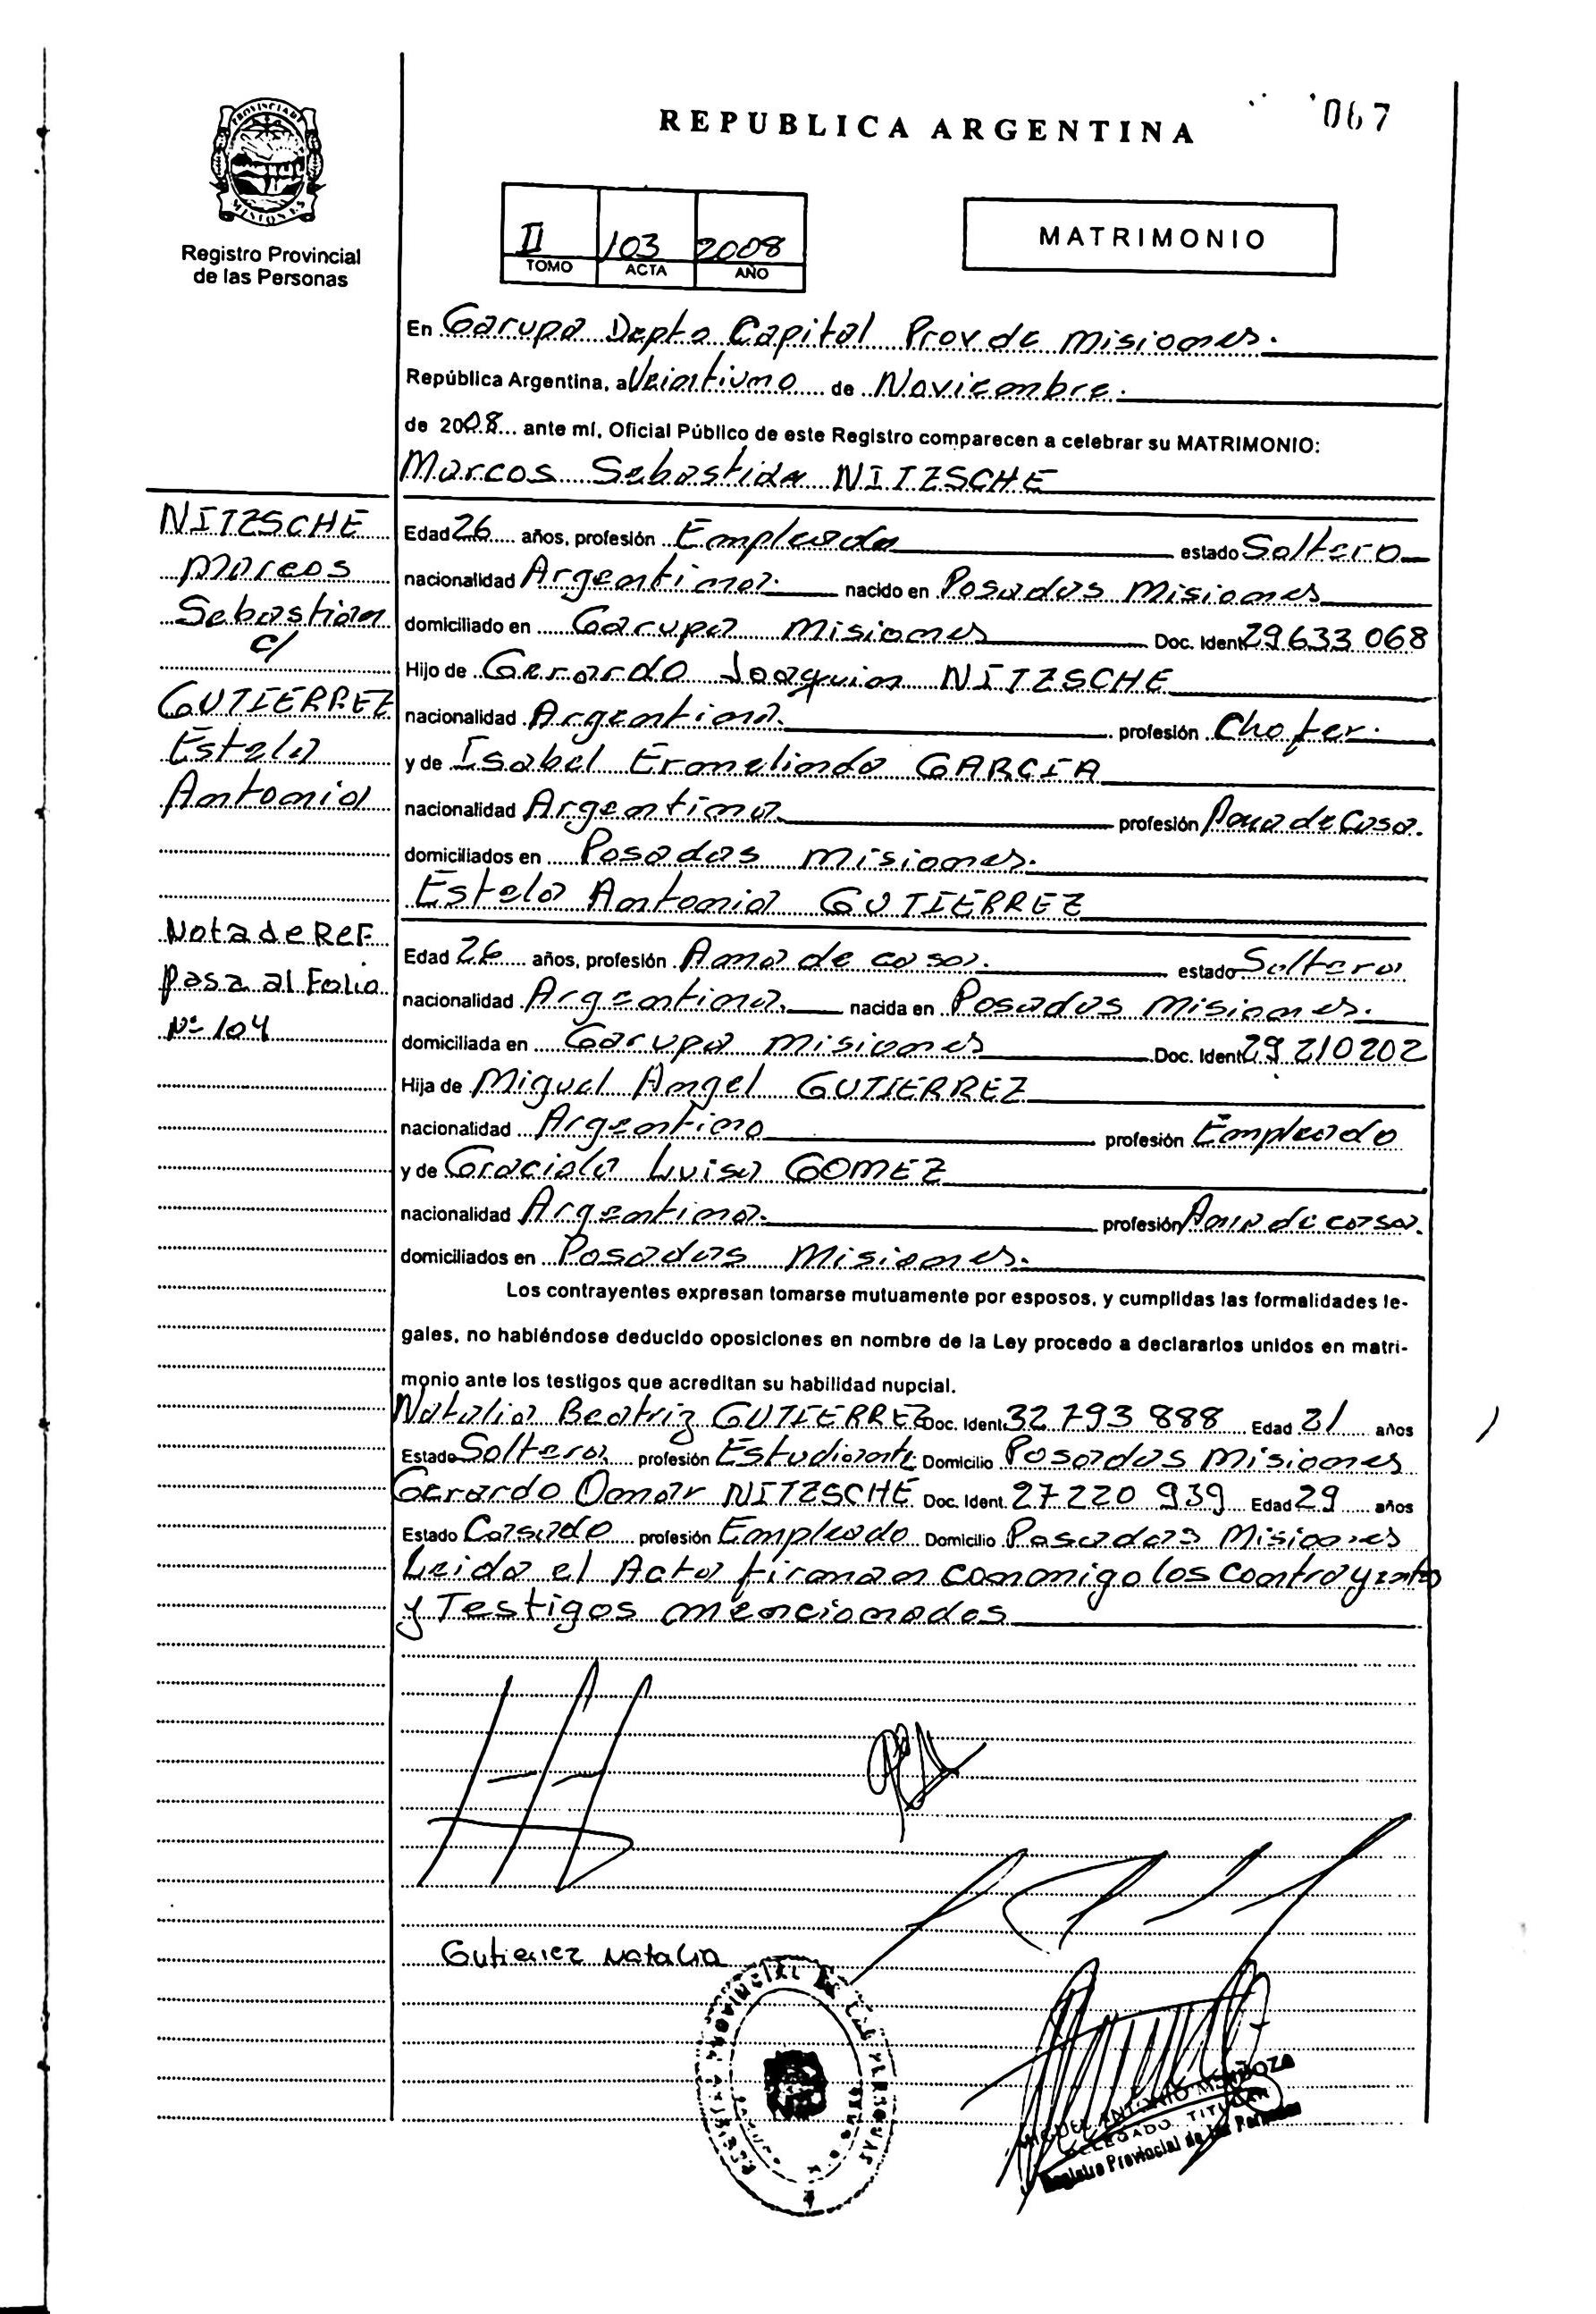 REPUBLICA ARGENTINA
067
PROVINCIA DE
MISIONES
Registro Provincial
de las Personas
II 103 2008
TOMO ACTA AÑO
MATRIMONIO
En Garupa Depto Capital Prov de Misiones.
República Argentina, a Veintiuno de Noviembre.
de 2008 ante mí, Oficial Público de este Registro comparecen a celebrar su MATRIMONIO:
Marcos Sebastian NITZSCHE
NITZSCHE
Marcos
Sebastian
c/
GUTIERREZ
Estela
Antonia
Nota de Ref.
pasa al Folio
Nº 104
Edad 26 años, profesión Empleado estado Soltero
nacionalidad Argentina. nacido en Posadas Misiones
domiciliado en Garupa Misiones Doc. Ident. 29 633 068
Hijo de Gerardo Joaquin NITZSCHE
nacionalidad Argentina. profesión Chofer.
y de Isabel Ermelinda GARCIA
nacionalidad Argentina profesión Ama de Casa.
domiciliados en Posadas Misiones.
Estela Antonia GUTIERREZ
Edad 26 años, profesión Ama de casa. estado Soltera
nacionalidad Argentina. nacida en Posadas Misiones.
domiciliada en Garupa Misiones Doc. Ident. 29 210202
Hija de Miguel Angel GUTIERREZ
nacionalidad Argentino profesión Empleado
y de Graciela Luisa GOMEZ
nacionalidad Argentina. profesión Ama de casa.
domiciliados en Posadas Misiones.
Los contrayentes expresan tomarse mutuamente por esposos, y cumplidas las formalidades le-
gales, no habiéndose deducido oposiciones en nombre de la Ley procedo a declararlos unidos en matri-
monio ante los testigos que acreditan su habilidad nupcial.
Natalia Beatriz GUTIERREZ Doc. Ident. 32 793 888 Edad 21 años
Estado Soltera profesión Estudiante Domicilio Posadas Misiones
Gerardo Omar NITZSCHE Doc. Ident. 27 220 939 Edad 29 años
Estado Casado profesión Empleado Domicilio Posadas Misiones
Leida el Acta firman conmigo los contrayentes
y Testigos mencionados
Gutierrez Natalia
MIGUEL ANTONIO MENDOZA
DELEGADO TITULAR
Registro Provincial de las Personas